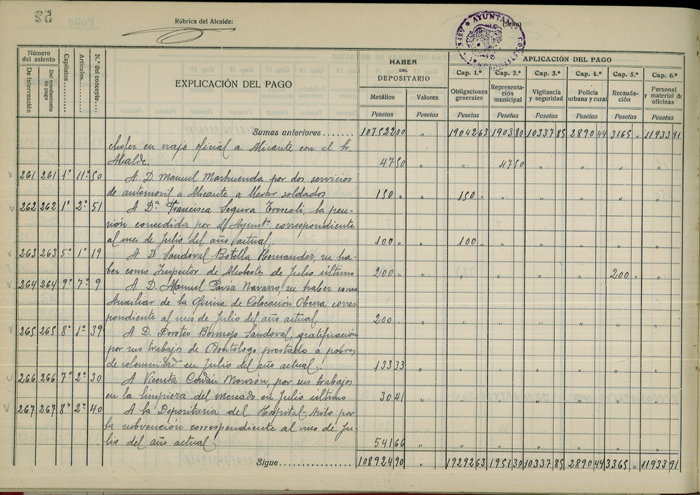 Rúbrica del Alcalde:
AYUNTAM
Número del asiento
De Intervención
Del mandamiento de pago
Capítulos
Artículos
N.º del concepto
EXPLICACIÓN DEL PAGO
HABER
DEL
DEPOSITARIO
Metálico
Valores
Pesetas
Pesetas
APLICACIÓN DEL PAGO
Cap. 1.º
Cap. 2.º
Cap. 3.º
Cap. 4.º
Cap. 5.º
Cap. 6.º
Obligaciones generales
Representación municipal
Vigilancia y seguridad
Policía urbana y rural
Recaudación
Personal y material de oficinas
Pesetas
Pesetas
Pesetas
Pesetas
Pesetas
Pesetas
Sumas anteriores 107522 00 " 19042 63 1903 80 10337 85 2890 44 3165 " 11933 91
chofer en viaje oficial a Alicante con el Sr.
Alcalde. 47 50 " 47 50
261 261 1º 11º 50 A D. Manuel por dos servicios
de automovil a Alicante a llevar soldados 150 " 150 "
262 262 1º 2º 51 A Dª Francisca Segura la pen-
sión concedida por el Ayuntº correspondiente
al mes de Julio del año actual. 100 " 100 "
263 263 5º 1º 19 A D. Sandoval Botella Hernandez, su ha-
ber como Inspector de de Julio último 200 " 200 "
264 264 9º 7º 9 A D. Manuel Pavia Navarro, su haber como
Auxiliar de la Oficina de Colocación Obrera corres-
pondiente al mes de Julio del año actual 200 "
265 265 8º 1º 39 A D. Bermejo Sandoval, gratificación
por sus trabajos de Odontologo prestados a pobres
de solemnidad en Julio del año actual. 133 33
266 266 7º 2º 30 A Vicente por sus trabajos
en la limpieza del mercado en Julio último 30 41
267 267 8º 2º 40 A la Depositaria del Hospital por
la subvención correspondiente al mes de Ju-
lio del año actual. 541 66
Sigue 108924 90 " 19292 63 1951 30 10337 85 2890 44 3365 " 11933 91